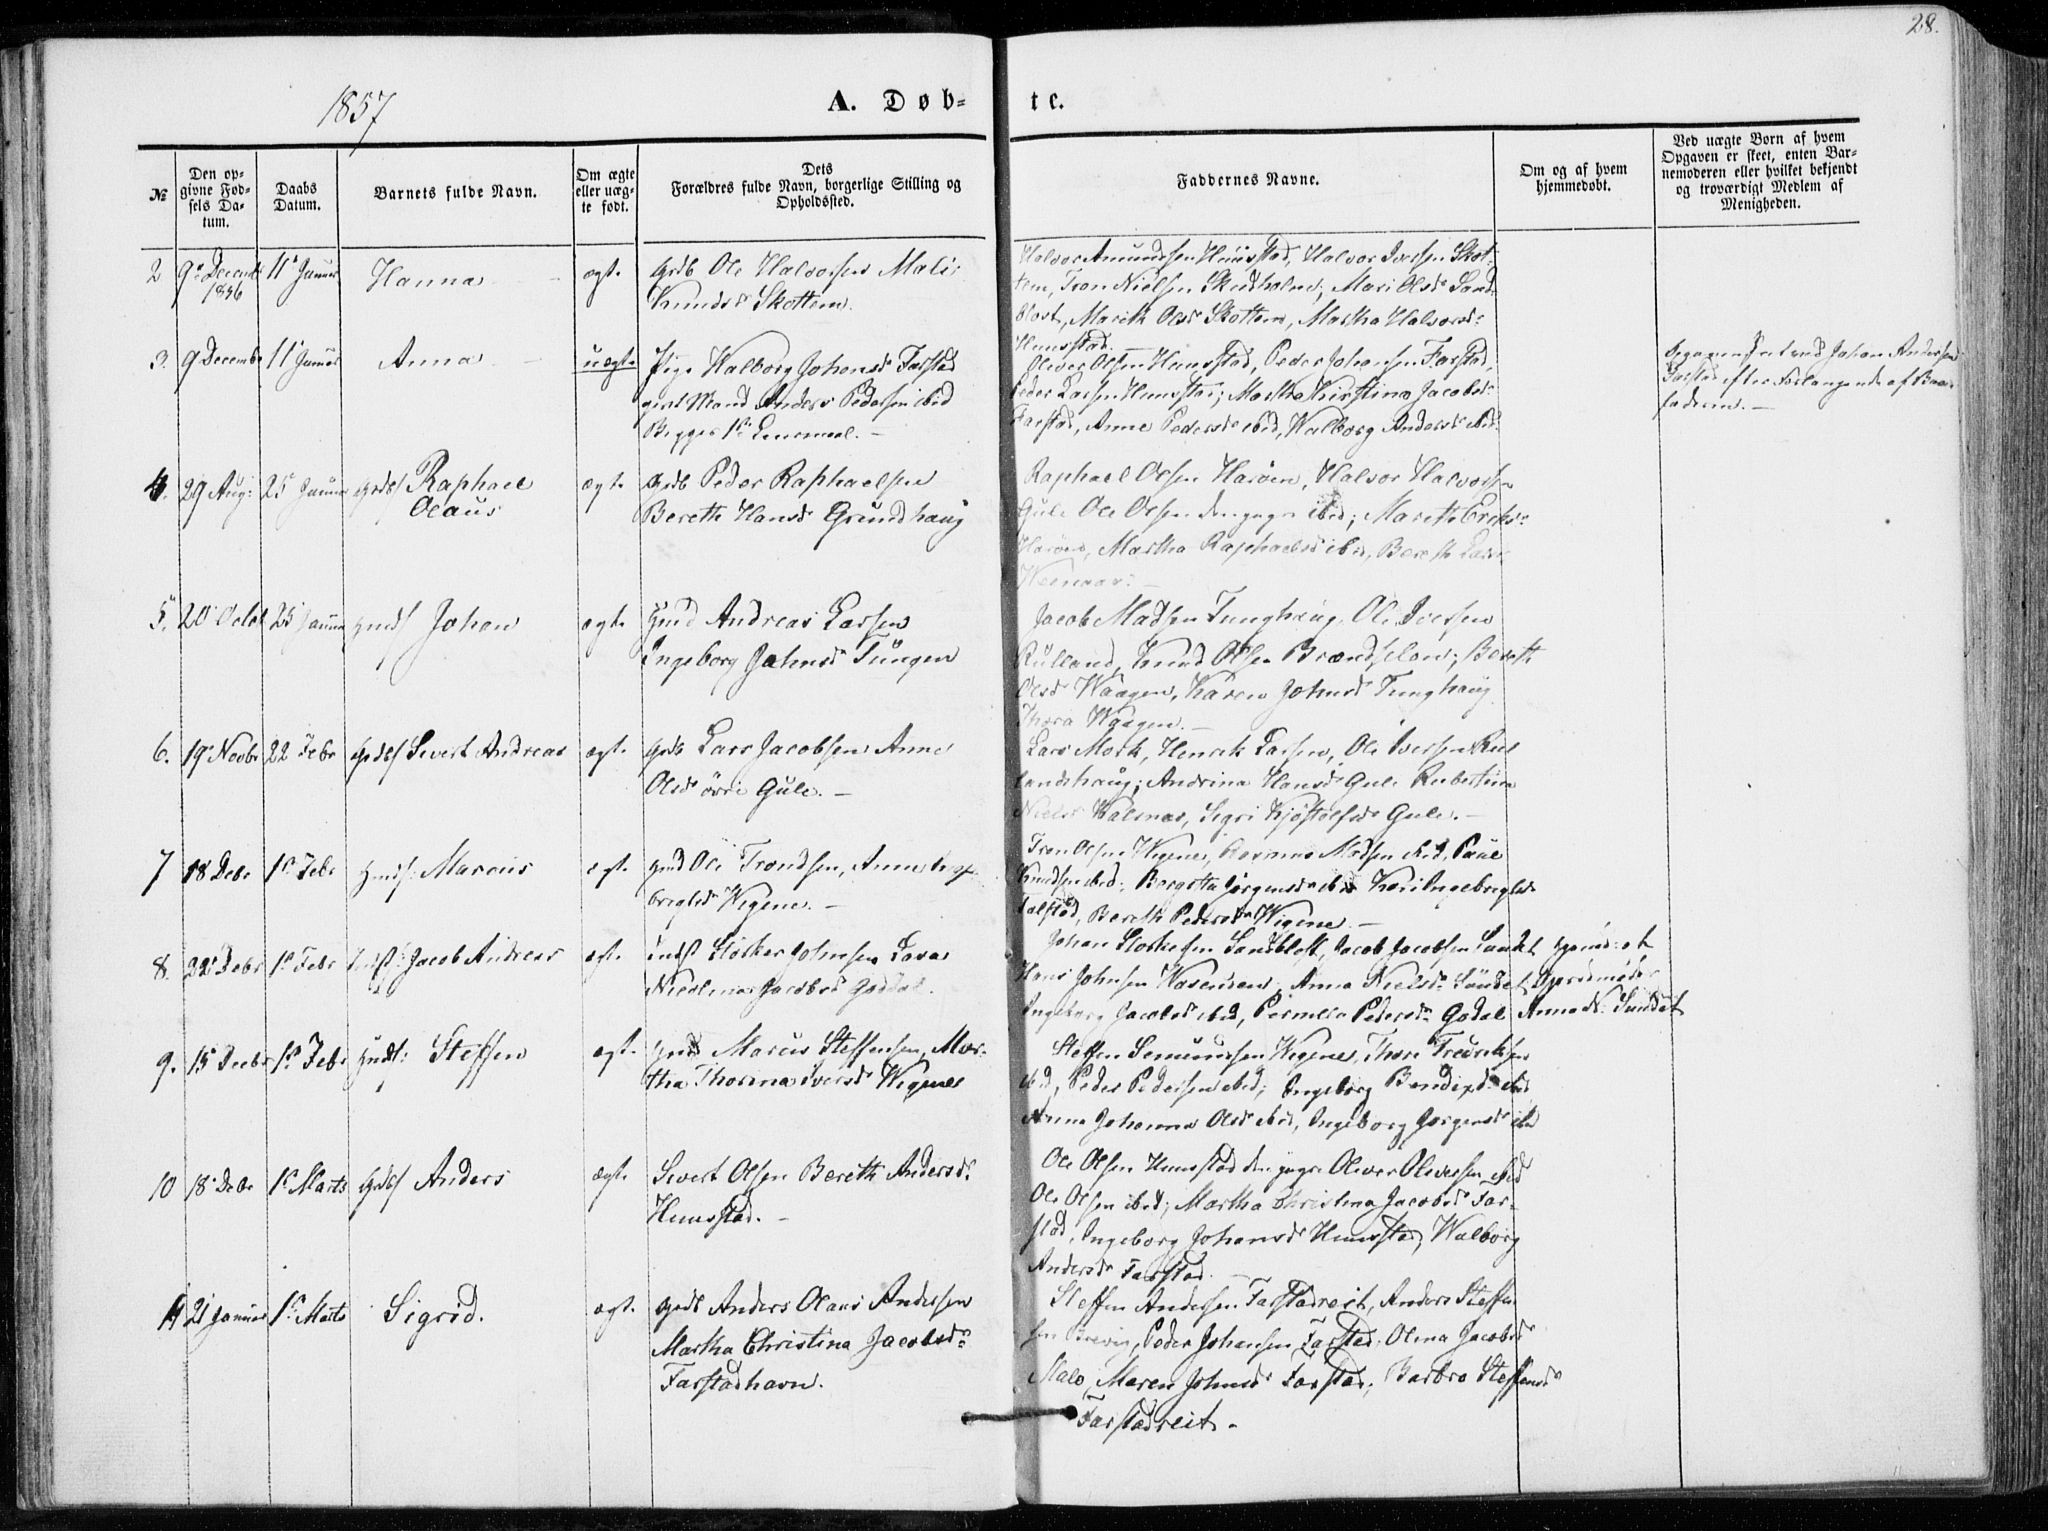 28.
1857
A. Døb-
te.
№
Den op-
givne Fød-
sels Da-
tum.
Daabs
Datum.
Barnets fulde Navn.
Om ægte
eller uæg-
te født.
Dets
Forældres fulde Navn, borgerlige Stilling og
Opholdssted.
Faddernes Navne.
Om og af hvem
hjemmedøbt.
Ved uægte Børn af hvem
Opgaven er skeet, enten Bar-
nemoderen eller hvilket bekjendt
og troværdigt Medlem af
Menigheden.
2 9 Decemb 11 Januar Hanna ægte Grdb Ole Halvorsen Mali
1856
Knudsd Skottem.
Halvor Amundsen Hunstad, Halvor Iversen Skot-
tem, Tron Nielsen Skudholm; Mari Olsd Sand-
blost, Marith Olsd Skottem, Martha Halvorsd
Hunstad.
3. 9 Decemb 11 Januar Anna uægte Pige Walborg Johansd Farstad
givt Mand Anders Pedersen ibid
Begges 1ste Leiermaal.
Oliver Olsen Hunstad, Peder Johansen Farstad,
Peder Larsen Hunstad; Martha Kirstina Jacobsd
Farstad, Anne Pedersd ibid, Walborg Andersd ibid
Johan Andersen
Farstad efter Forlangende af Barne
faderen.
4. 29 Aug: 25 Januar Grdbs Raphael
Olaus
ægte Grdb Peder Raphaelsen
Bereth Hansd Grundhaug
Raphael Olsen Harøen, Halvor Halvorsen
Gule Ole Olsen den yngre ibid; Marith Eriksd
Harøen, Martha Raphaelsd ibid, Bereth Larsd
5. 20 Octob 25 Januar Hmds Johan ægte Hmd Andreas Larsen
Ingeborg Johnsd Tungen
Jacob Madsen Tunghaug, Ole Iversen
Rulland, Knud Olsen Brændsløen; Bereth
Olsd Waagen, Karen Johnsd Tunghaug
Thora Waagen.
6. 19 Novbr 22 Febr Grdbs Sivert Andreas ægte Grdb Lars Jacobsen Anne
Olsd övre Gule.
Lars Mork, Henrik Larsen, Ole Iversen Rul
landshaug; Andrina Hansd Gule Rubertina
Nielsd Malmas, Sigri Kjøstolsd Gule.
7 18 Debr 1ste Febr Hmds: Marcus ægte Hmd Ole Trondsen, Anne Inge-
brigtsd Wigene.
Tron Olsen Wigene, Rasmus Madsen ibid, Paul
Knudsen ibid; Bergitta Jörgensd ibid Kari Ingebrigtsd
Talstad, Bereth Pedersd Wigene
8. 22 Debr 1ste Febr Inds: Jacob Andreas ægte Inds Störker Johnsen Lava
Nicolina Jacobsd Godal.
Johan Storkersen Sandblost, Jacob Jacobsen Sundet
Hans Johnsen Wasenden, Anna Nielsd Sundet
Ingeborg Jacobsd ibid, Pernella Pedersd Godal
Hjemmedøbt
Gjordmoder
Anna N. Sundet
9. 15 Decbr 1ste Febr Hmds: Steffen ægte Hmd Marcus Steffensen, Mar-
tha Thorina Iversd Wigene
Steffen Simundsen Wigene, Thore Fredriksen
ibid, Peder Pedersen ibid; Ingeborg Bendixd ibid
Anna Johanna Olsd ibid, Ingeborg Jørgensd ibid
10 18 Debr 1ste Marts Grdbs Anders ægte Sivert Olsen Bereth Andersd
Hunstad.
Ole Olsen Hunstad den yngre Oliver Oliversen ibid
Ole Olsen ibid; Martha Christina Jacobsd Far-
stad, Ingeborg Johansd Hunstad, Walborg
Andersd Farstad.
11 21 Januar 1ste Marts Sigrid. ægte Grdb Anders Olaus Andersen
Martha Christina Jacobsd
Farstadhavn.
Steffen Andersen Farstadreit, Anders Steffen
sen Brevig, Peder Johansen Farstad; Olina Jacobsd
Male, Maren Johnsd Farstad, Barbro Steffensd
Farstadreit.